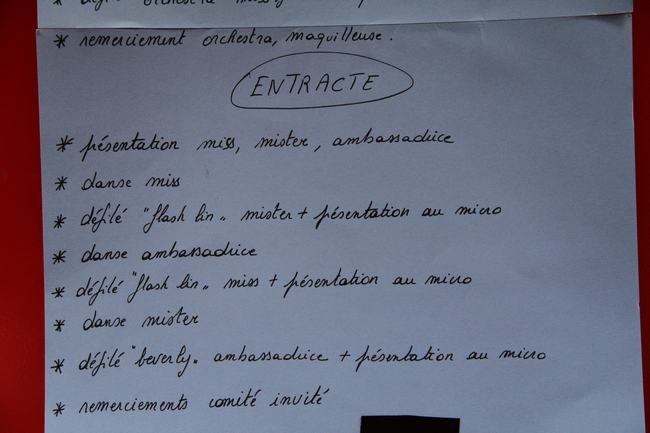 * défilé orchestra miss
* remerciement orchestra, maquilleuse.
ENTRACTE
* présentation miss, mister, ambassadrice
* danse miss
* défilé "flash lin" mister + présentation au micro
* danse ambassadrice
* défilé "flash lin" miss + présentation au micro
* danse mister
* défilé "beverly" ambassadrice + présentation au micro
* remerciements comité invité